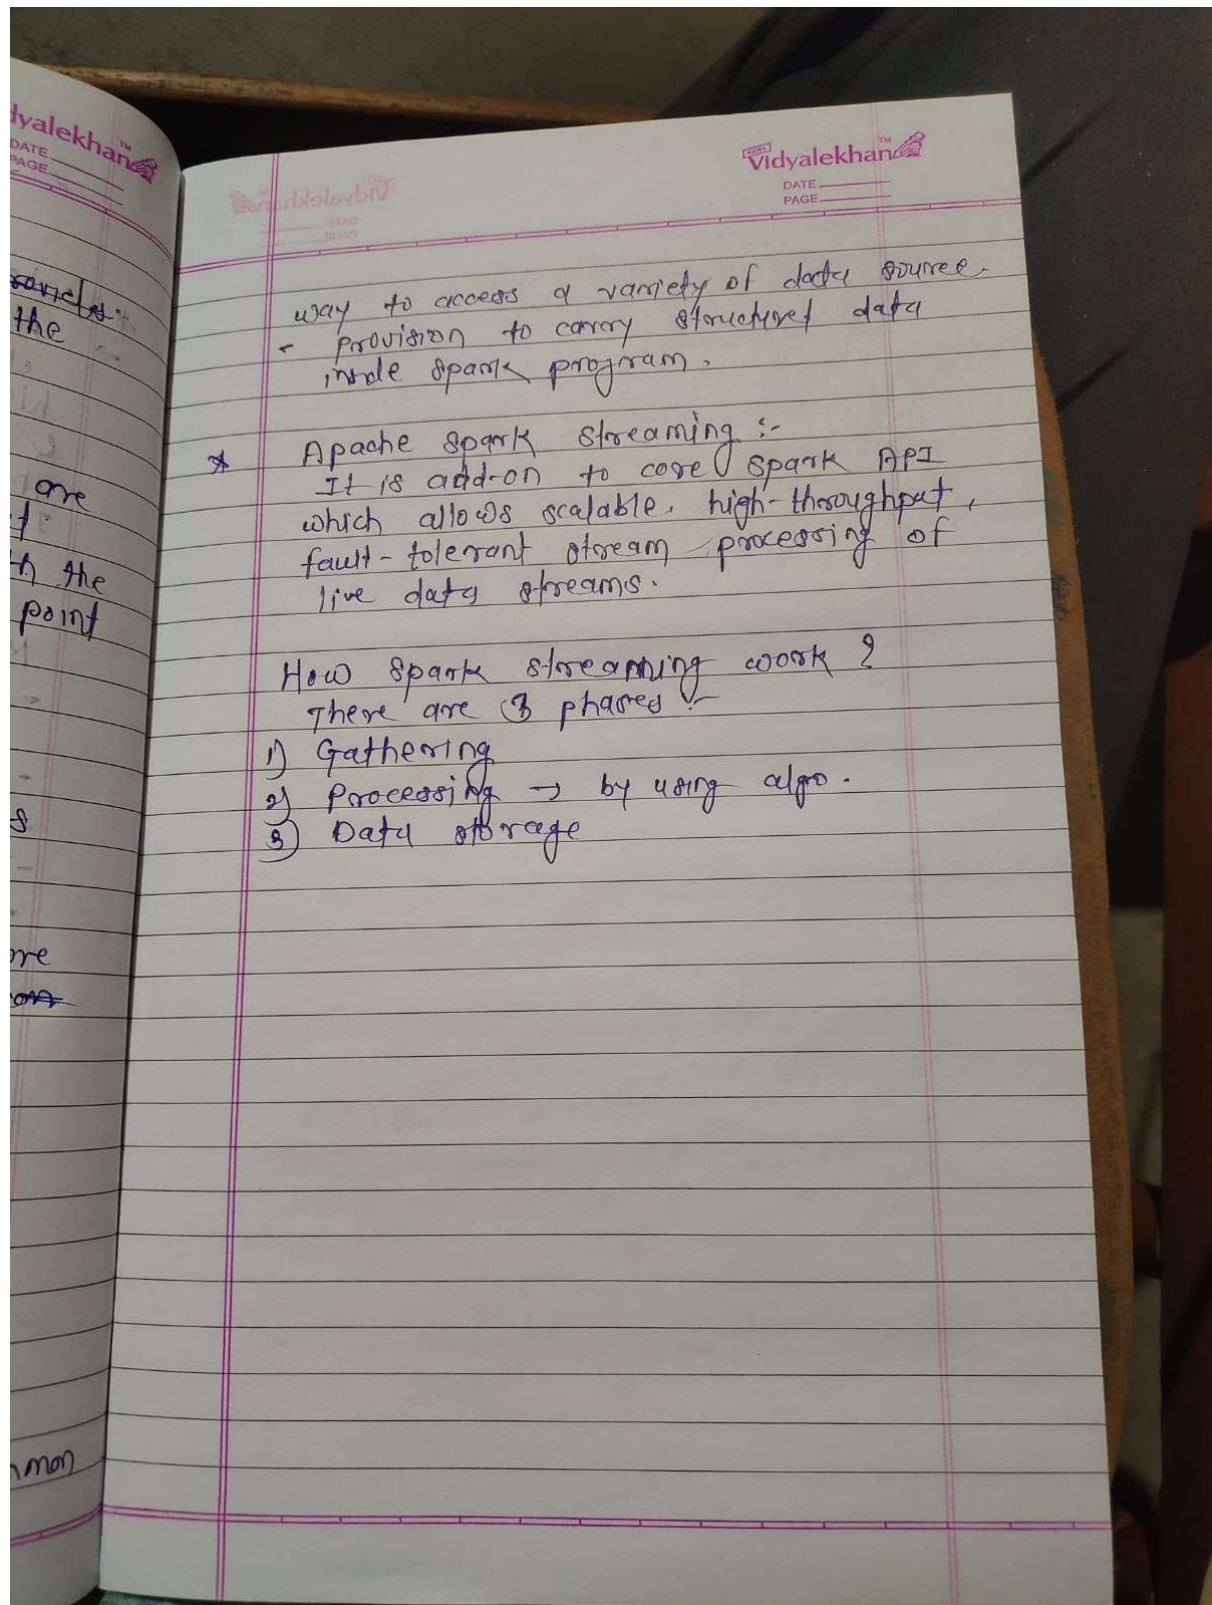 dyalekhan
TM
DATE
PAGE
the
are
th the
point
s
mon
Vidyalekhan
TM
DATE
PAGE
way to access a variety of data source.
- Provision to carry structured data
inside spark program.
* Apache spark streaming :-
It is add-on to core spark API
which allows scalable, high-throughput,
fault-tolerant stream processing of
live data streams.
How spark streaming work ?
There are 3 phases :-
1) Gathering
2) Processing → by using algo.
3) Data storage